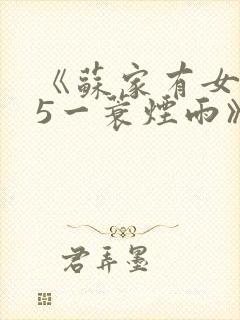 《蘇家有女
5一蓑煙雨》
君弄墨